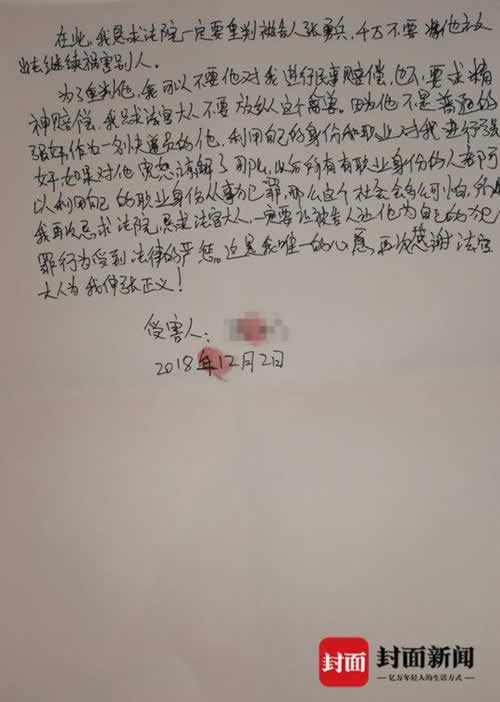 在此,我恳求法院一定要重判被告人张勇兵,千万不要将他放
出去继续祸害别人。
为了重判他,我可以不要他对我进行民事赔偿,也不要求精
神赔偿,我只求法官大人不要放纵这个禽兽。因为他不是普通的
强奸,作为一名快递员的他,利用自己的身份和职业对我进行强
奸,如果对他宽恕谅解了可以,以后所有有职业身份的人都可
以利用自己的职业身份从事犯罪,那么这个社会会多么可怕,所以
我再次恳求法院,恳求法官大人,一定要让被告人让他为自己的犯
罪行为受到法律的严惩。这是我唯一的心愿,再次感谢法官
大人为我伸张正义!
受害人:
2018年12月2日
封面 封面新闻
亿万年轻人的生活方式